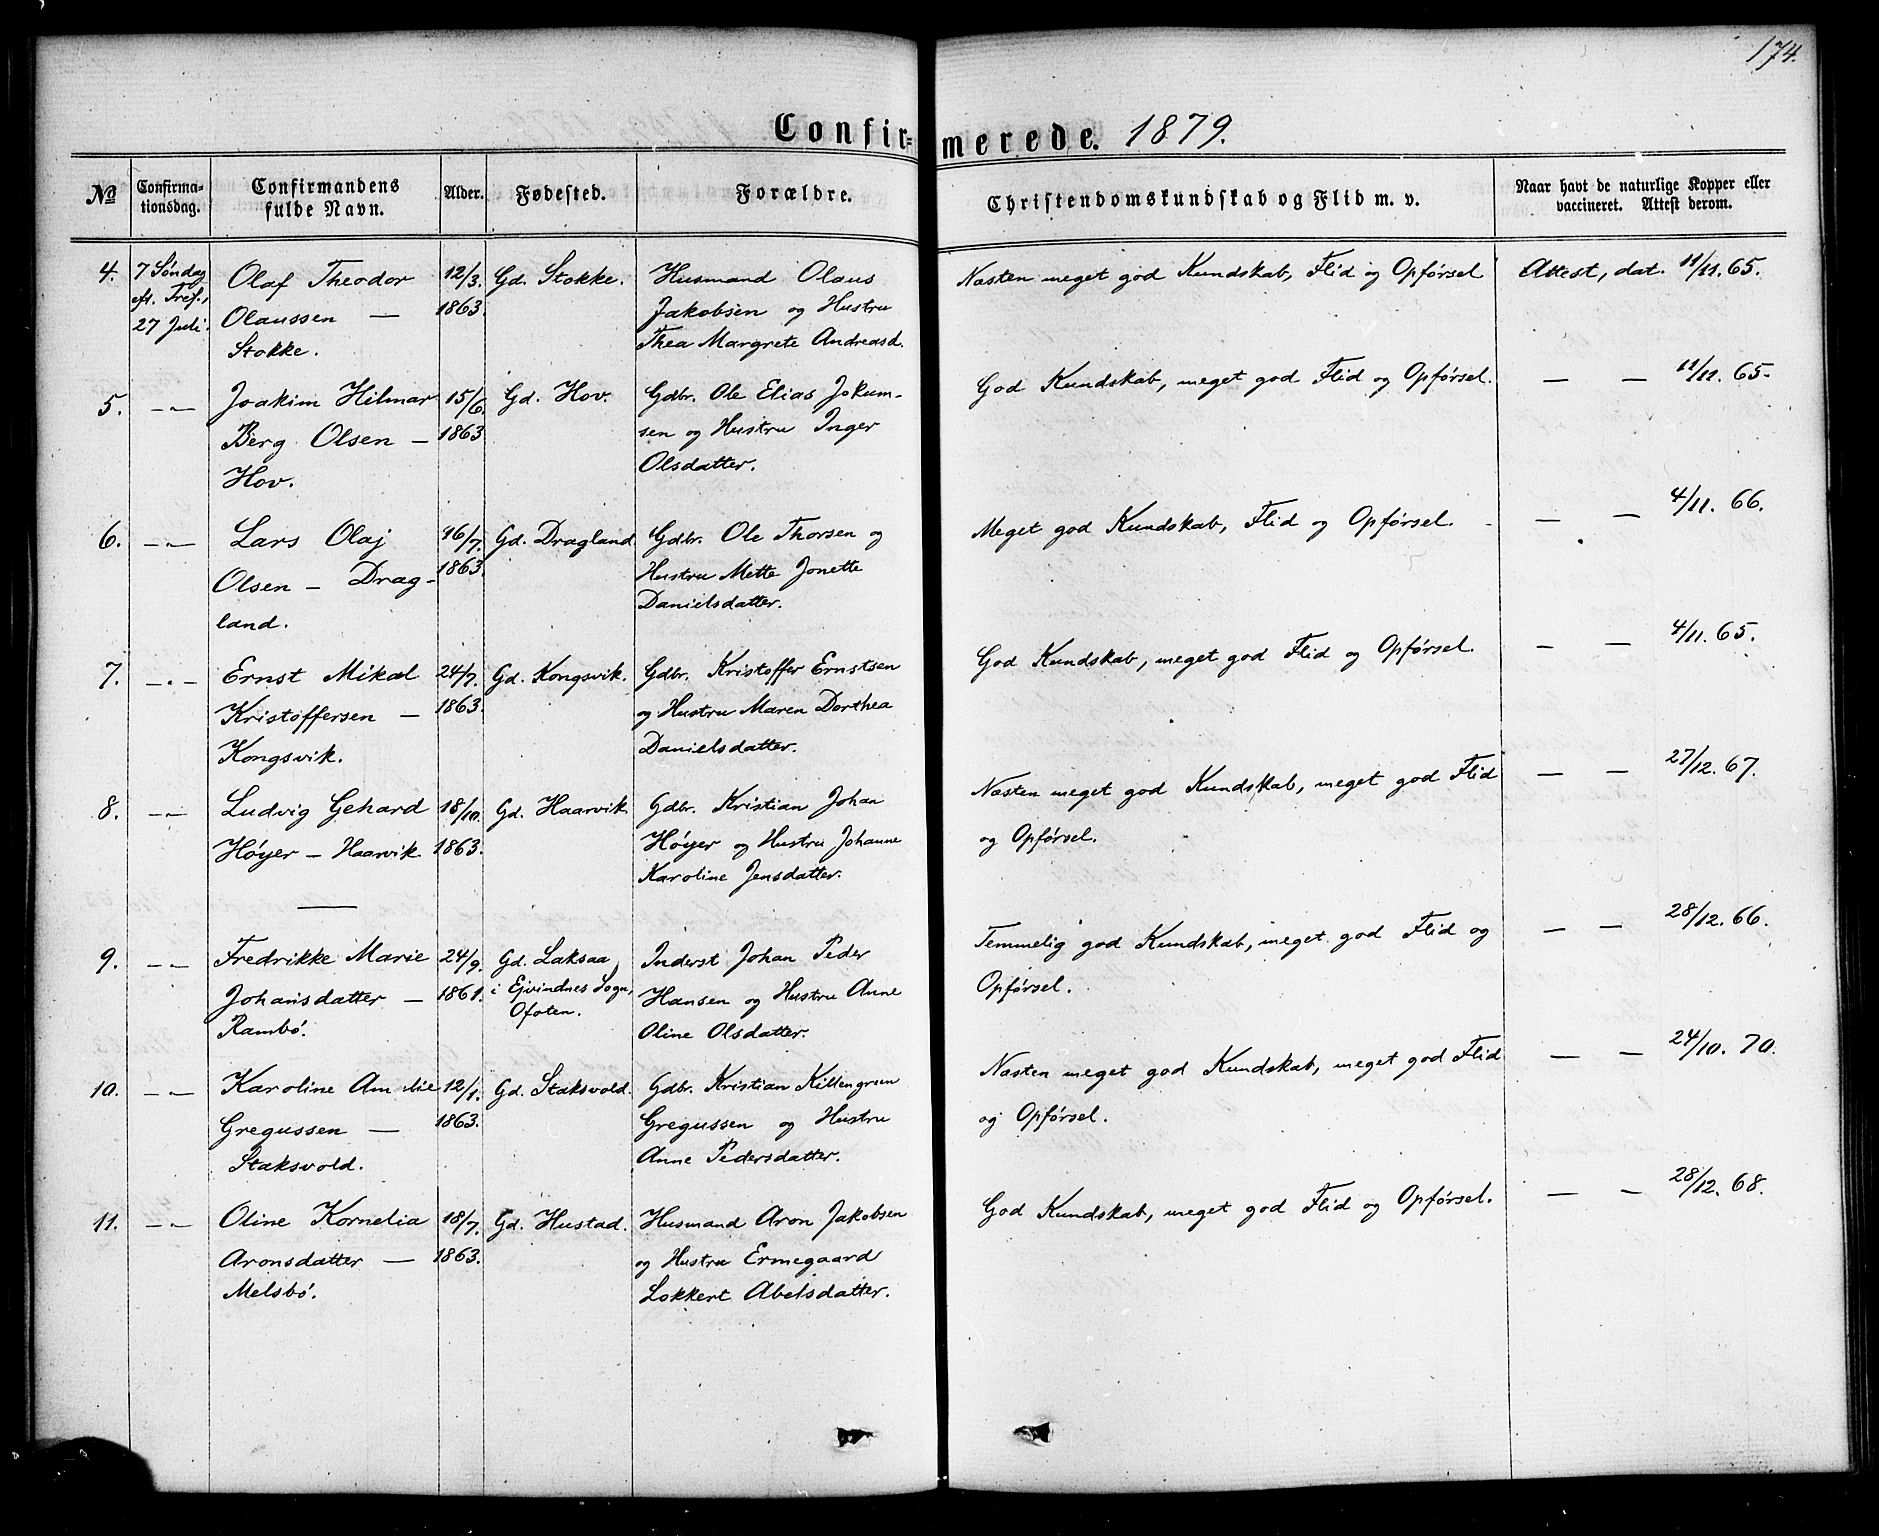 174.
Confir=merede. 1879.
No | Confirma-tionsdag. | Confirmandens fulde Navn. | Alder. | Fødested. | Forældre. | Christendomskundskab og Flid m. v. | Naar havt de naturlige Kopper eller vaccineret. Attest derom.
4. 7 Søndag Olaf Theodor 12/3. Gd. Stokke. Husmand Olaus Næsten meget god Kundskab, Flid og Opførsel Attest, dat. 11/11. 65.
eft. Tref., Olaussen — 1863. Jakobsen og Hustru
27 Juli. Stokke. Thea Margrete Andreasd.
5. —"— Joakim Hilmar 15/6. Gd. Hov. Gdbr. Ole Elias Jokum- God Kundskab, meget god Flid og Opførsel. — — 11/11. 65.
Berg Olsen — 1863 sen og Hustru Inger
Hov. Olsdatter.
6. —"— Lars Olaj 16/7. Gd. Dragland Gdbr. Ole Thorsen og Meget god Kundskab, Flid og Opførsel. — — 4/11. 66.
Olsen — Drag- 1863. Hustru Mette Jonette
land. Danielsdatter.
7. —"— Ernst Mikal 24/7. Gd. Kongsvik. Gdbr. Kristoffer Ernstsen God Kundskab, meget god Flid og Opførsel. — — 4/11. 65.
Kristoffersen — 1863. og Hustru Maren Dorthea
Kongsvik. Danielsdatter.
8. —"— Ludvig Gehard 18/10. Gd. Haarvik. Gdbr. Kristian Johan Næsten meget god Kundskab, meget god Flid — — 27/12. 67.
Høyer — Haarvik 1863. Høyer og Hustru Johanne og Opførsel.
Karoline Jensdatter.
9. —"— Fredrikke Marie 24/9. Gd. Laksaa, Inderst Johan Peder Temmelig god Kundskab, meget god Flid og — — 28/12. 66.
Johansdatter — 1861. i Ejvindnes Sogn, Hansen og Hustru Anne Opførsel.
Rambø. Ofoten. Oline Olsdatter.
10. —"— Karoline Amalie 12/1. Gd. Staksvold. Gdbr. Kristian Killengreen Næsten meget god Kundskab, meget god Flid — — 24/10. 70.
Gregussen — 1863. Gregussen og Hustru og Opførsel.
Staksvold. Anne Pedersdatter.
11. —"— Oline Kornelia 18/7. Gd. Hustad. Husmand Aron Jakobsen God Kundskab, meget god Flid og Opførsel. — — 28/12. 68.
Aronsdatter — 1863. og Hustru Ermegaard
Melsbø. Lokkert Abelsdatter.